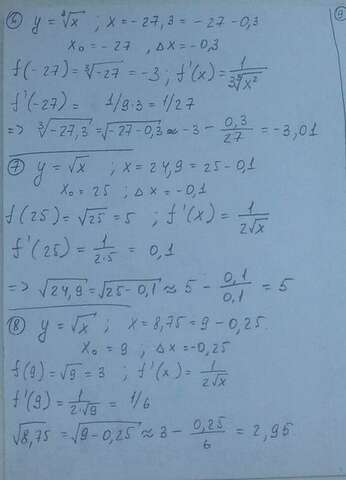 ⑥ y = ∛x ; x = -27,3 = -27 - 0,3
x₀ = -27 , Δx = -0,3
f(-27) = ∛-27 = -3 ; f'(x) = 1/(3∛x²)
f'(-27) = 1/9·3 = 1/27
=> ∛-27,3 = √-27-0,3 ≈ -3 - 0,3/27 = -3,01
⑦ y = √x ; x = 24,9 = 25 - 0,1
x₀ = 25 ; Δx = -0,1
f(25) = √25 = 5 ; f'(x) = 1/(2√x)
f'(25) = 1/(2·5) = 0,1
=> √24,9 = √25-0,1 ≈ 5 - 0,1/0,1 = 5
⑧ y = √x ; x = 8,75 = 9 - 0,25.
x₀ = 9 , Δx = -0,25
f(9) = √9 = 3 ; f'(x) = 1/(2√x)
f'(9) = 1/(2·√9) = 1/6
√8,75 = √9-0,25 ≈ 3 - 0,25/6 = 2,95
⑨